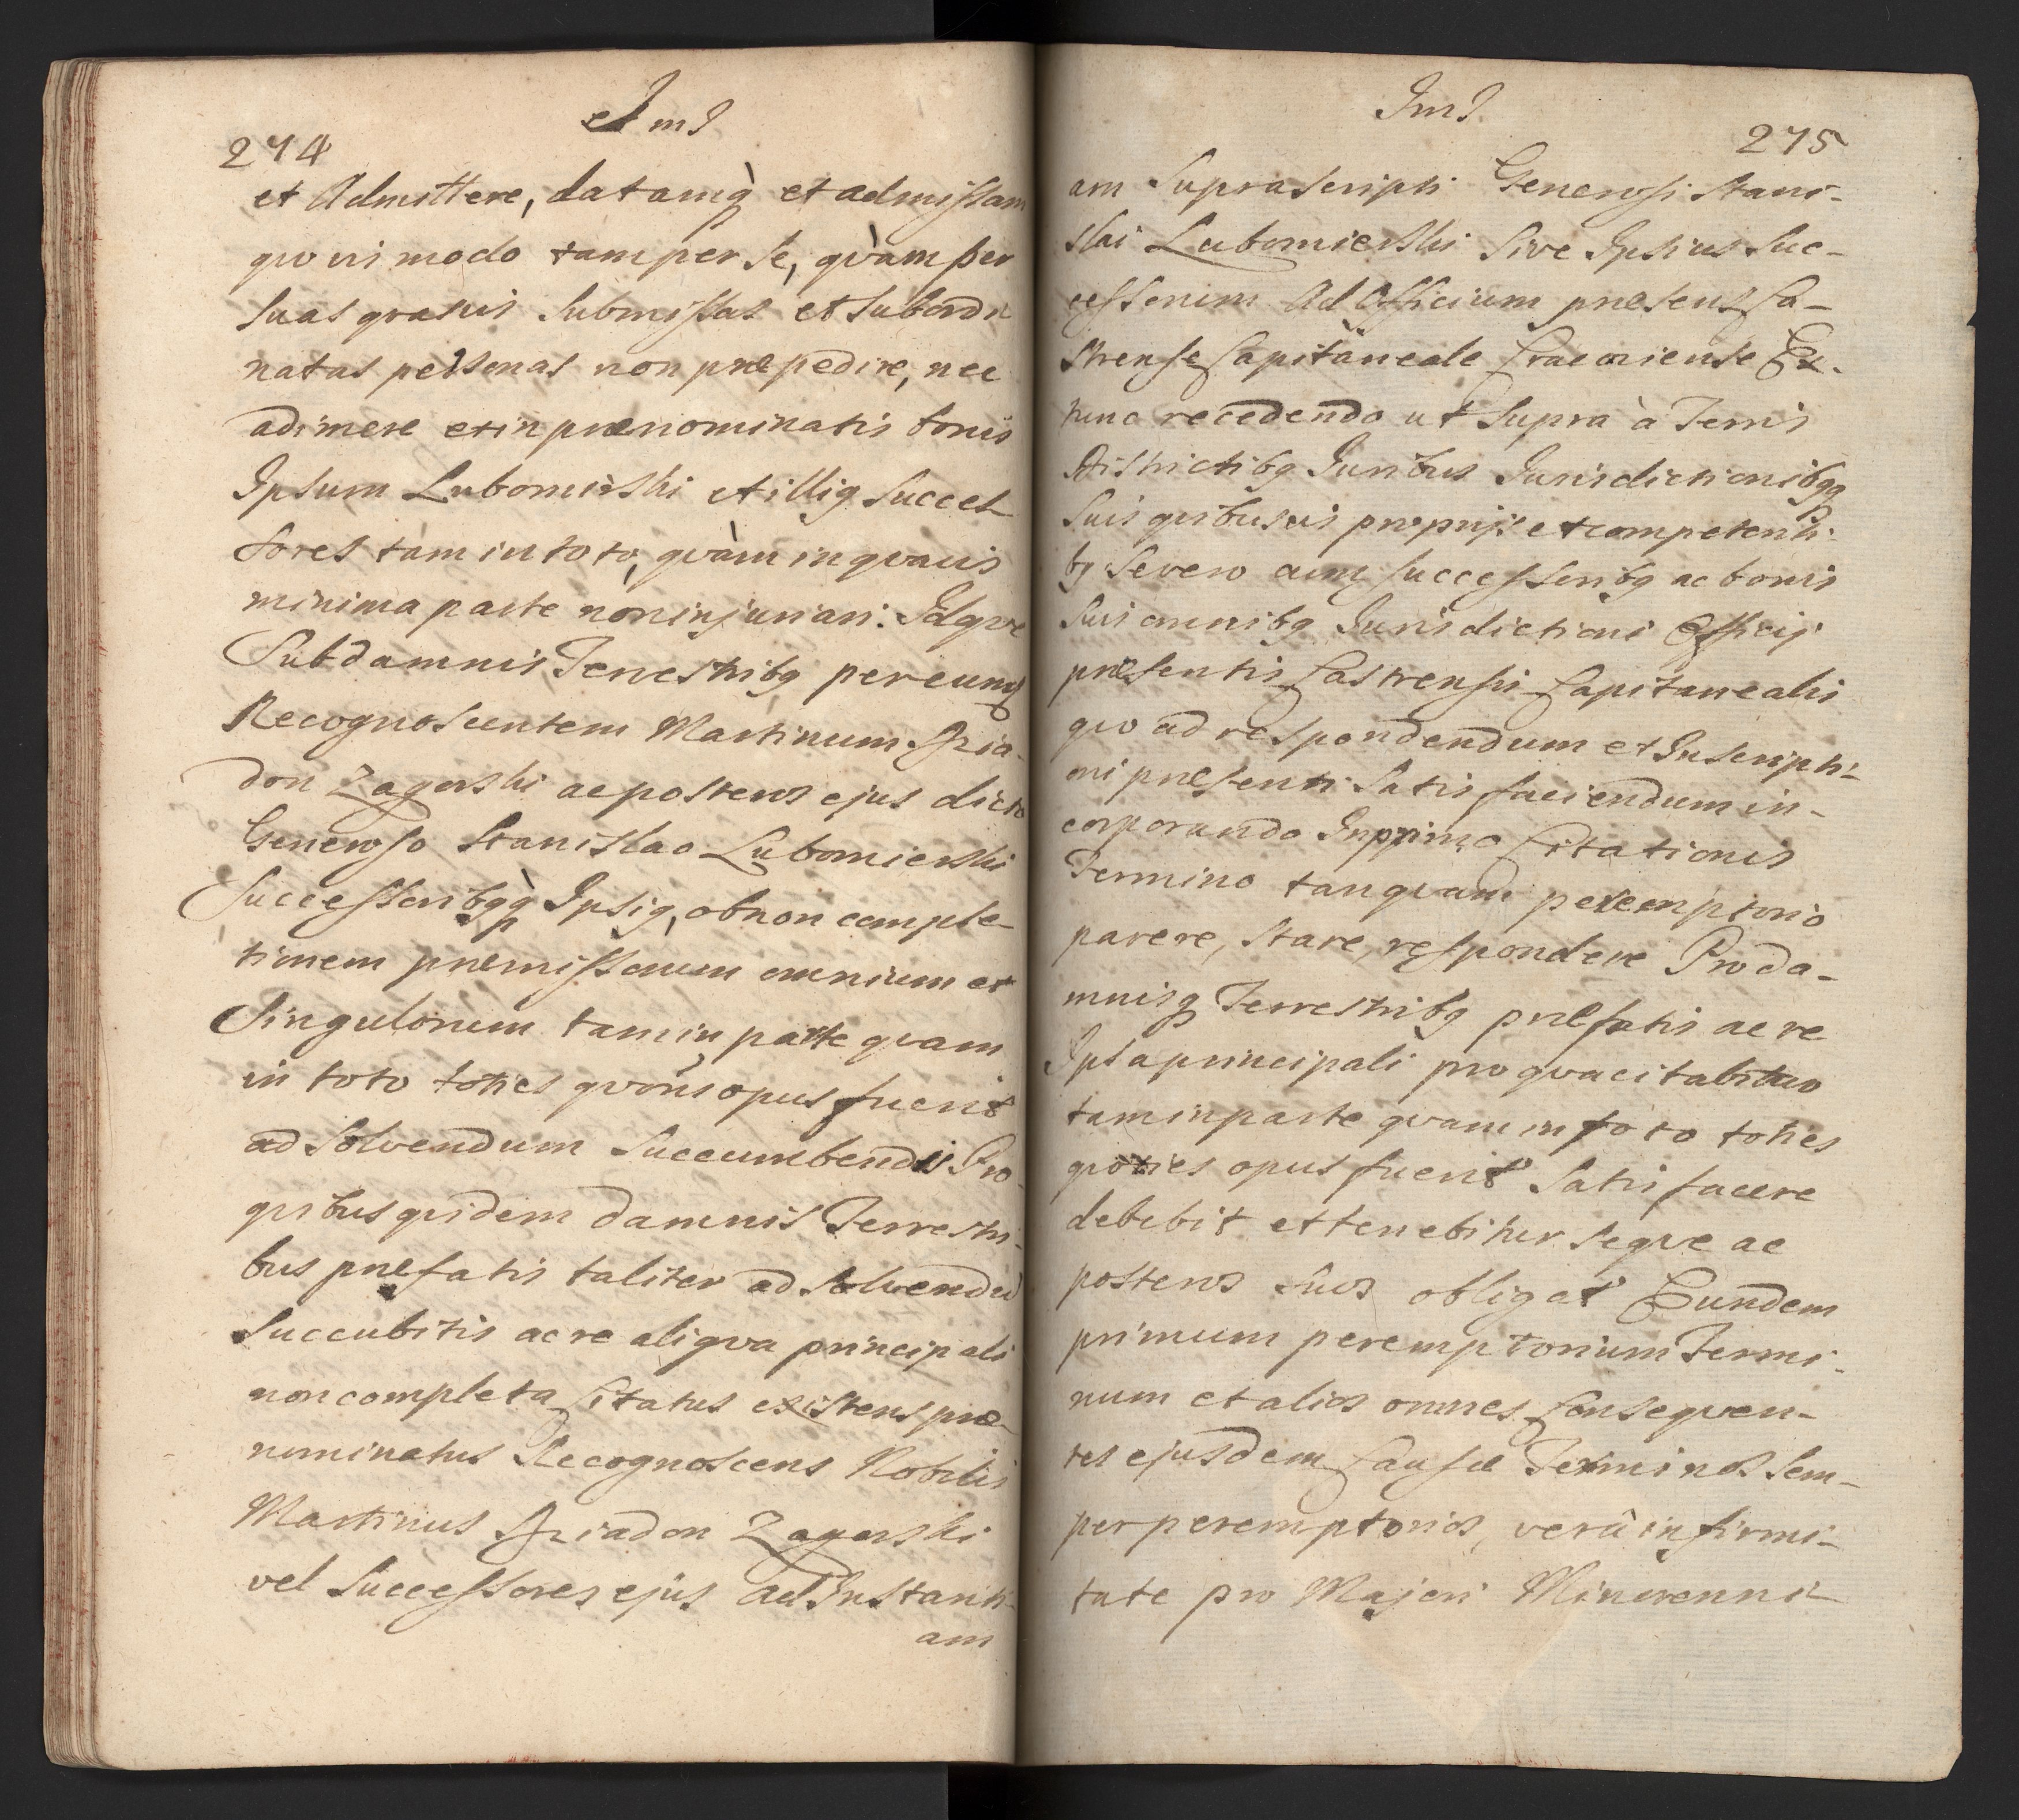 Jms
274
et Admittere, datamq̀ et admissam
quovis modo tam per se, qvàm per
suas qvasvis submissas et subordi
natas personas non præpedire, nec
adimere et in prænominatis bonis
Ipsum Lubomirski et illig succes
sores tàm in toto, qvàm in qvavis
minima parte non injuriari: Idqve
Sub damnis Terrestribq per eumq
Recognoscentem Martinum
don Zagorski ac posteros ejus dicto
Generoso Stanislao Lubomierski
Successoribqq̀ Ipsiq, ob non comple-
tionem præmissorum omnium et
Singulorum tam in parte qvam
in toto toties qvoties opus fuerit
ad solvendum succumbendis Pro
qvibus qvidem damnis Terrestri-
bus præfatis taliter ad solvendũ
succubitis ac re aliqva principali
non completa Citatus existens præ-
nominatus Recognoscens Nobilis
Martinus Zagorski
vel successores ejus ad Instanti-
am
Jms
275
am suprascripti Generosi Stani-
slai Lubomierski sive Ipsius suc-
cessorum Ad Officium præsens Ca-
strense Capitaneale Cracoviense Ex-
nunc recedendo ut supra à Terris
Districtibq Juribus Jurisdictionibqq
suis qvibusvis proprijs et competenti-
bq severo cum successoribq ac bonis
suis omnibq Jurisdictioni Officij
præsentis Castrensis Capitanealis
qvo ad respondendum et Inscripti-
oni præsenti satisfaciendum in-
corporando In primo Citationis
Termino tanqvam peremptorio
parere, stare, respondere Pro da-
mnisq Terrestribq præfatis ac re
Ipsa principali pro qva citabitur
tam in parte qvam in toto toties
qvoties opus fuerit satisfacere
debebit et tenebitur seqve ac
posteros suos obligat Eundem
primum peremptorium Termi-
num et alios omnes Conseqven-
tes ejusdem Causæ Terminos sem-
per peremptorios, verâ infirmi-
tate pro Majori Minorenni-